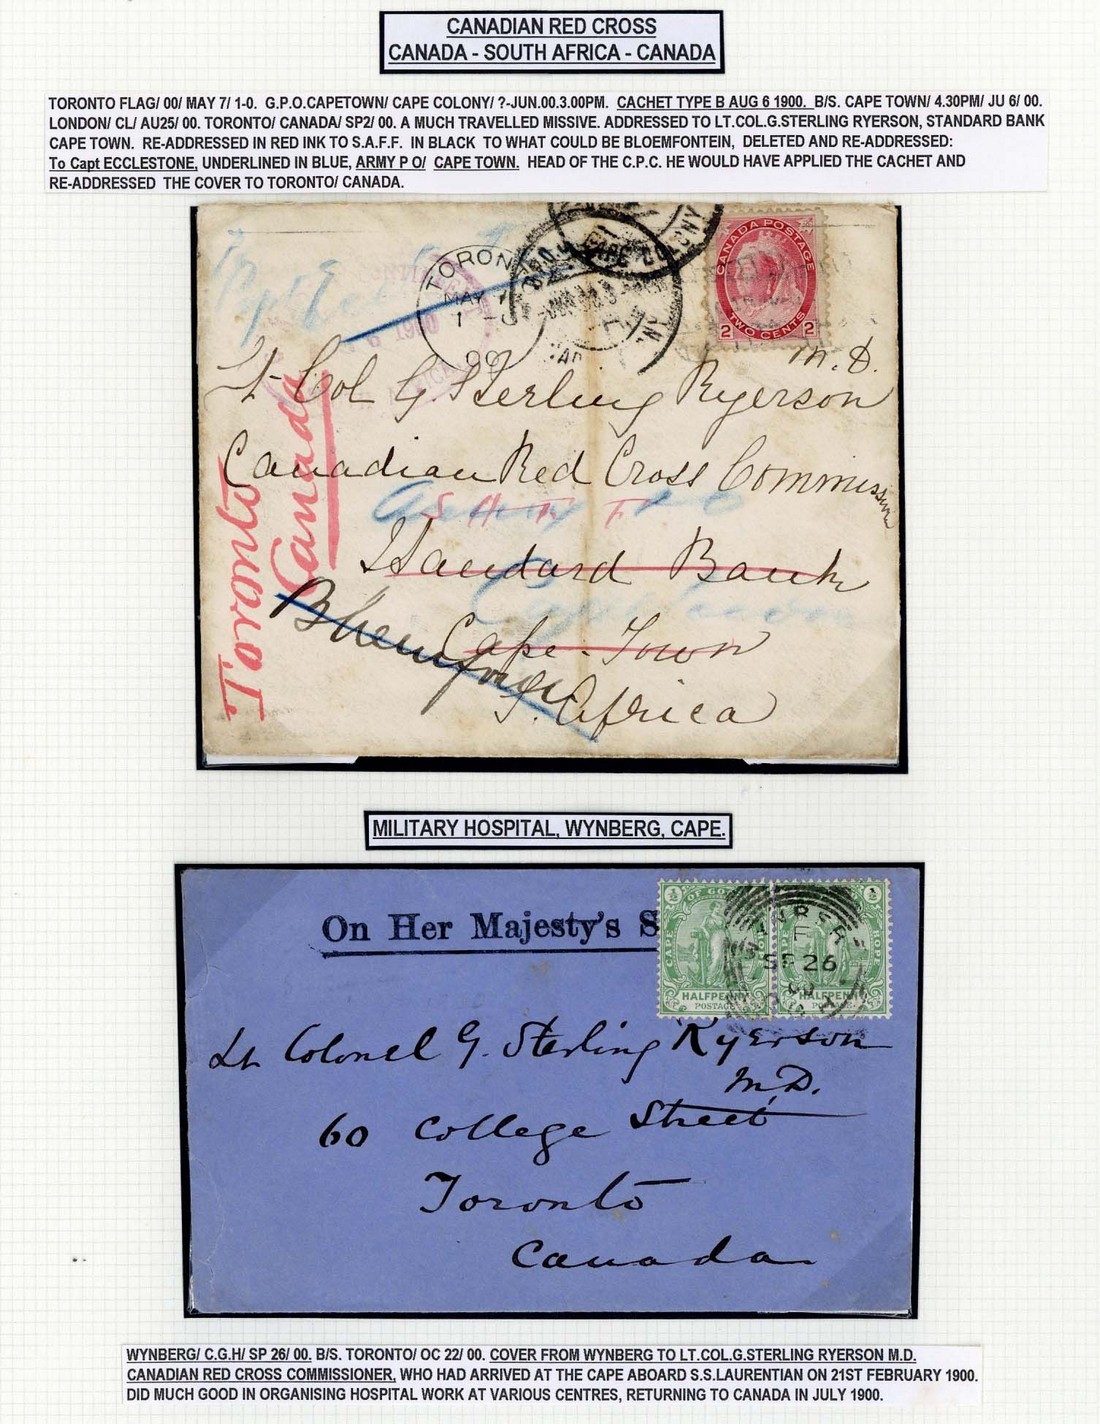 CANADIAN RED CROSS
CANADA - SOUTH AFRICA - CANADA
TORONTO FLAG/ 00/ MAY 7/ 1-0. G.P.O.CAPETOWN/ CAPE COLONY/ ?-JUN.00.3.00PM. CACHET TYPE B AUG 6 1900. B/S. CAPE TOWN/ 4.30PM/ JU 6/ 00.
LONDON/ CL/ AU25/ 00. TORONTO/ CANADA/ SP2/ 00. A MUCH TRAVELLED MISSIVE. ADDRESSED TO LT.COL.G.STERLING RYERSON, STANDARD BANK
CAPE TOWN. RE-ADDRESSED IN RED INK TO S.A.F.F. IN BLACK TO WHAT COULD BE BLOEMFONTEIN, DELETED AND RE-ADDRESSED:
To Capt ECCLESTONE, UNDERLINED IN BLUE, ARMY P O/ CAPE TOWN. HEAD OF THE C.P.C. HE WOULD HAVE APPLIED THE CACHET AND
RE-ADDRESSED THE COVER TO TORONTO/ CANADA.
CANADA POSTAGE
2 TWO CENTS 2
TORON
MAY 7
1 - 0
00
1900
M.D.
Lt Col G Sterling Ryerson
Canadian Red Cross Commission
Army P O
S A F F
Standard Bank
Cape Town
S. Africa
Toronto
Canada
MILITARY HOSPITAL, WYNBERG, CAPE.
On Her Majesty's S
½ OF GO
CAPE
HALFPENNY
POSTAGE
½
HOPE
HALFPENNY
SP 26
00
Lt Colonel G. Sterling Ryerson
M.D.
60 College Street
Toronto
Canada
WYNBERG/ C.G.H/ SP 26/ 00. B/S. TORONTO/ OC 22/ 00. COVER FROM WYNBERG TO LT.COL.G.STERLING RYERSON M.D.
CANADIAN RED CROSS COMMISSIONER, WHO HAD ARRIVED AT THE CAPE ABOARD S.S.LAURENTIAN ON 21ST FEBRUARY 1900.
DID MUCH GOOD IN ORGANISING HOSPITAL WORK AT VARIOUS CENTRES, RETURNING TO CANADA IN JULY 1900.